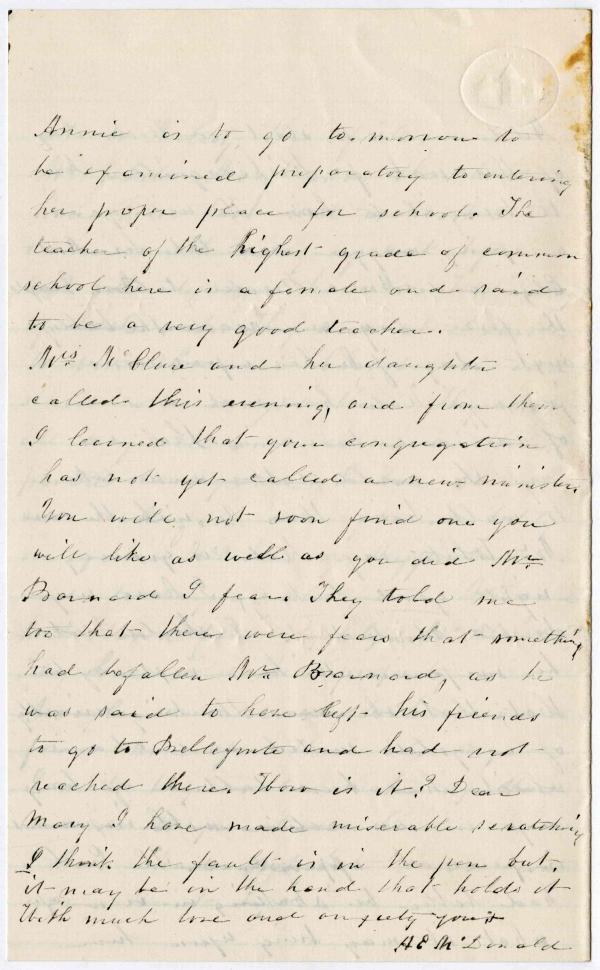 Annie is to go to-morrow to
be examined preparatory to entering
her proper place for school. The
teacher of the highest grade of common
school here is a female and said
to be a very good teacher.
Mrs McClure and her daughter
called this evening, and from them
I learned that your congregation
has not yet called a new minister.
You will not soon find one you
will like as well as you did Mr
Barnard I fear. They told me
too that there were fears that something
had befallen Mr. Barnard, as he
was said to have left his friends
to go to Bellefonte and had not
reached there. How is it? Dear
Mary I have made miserable scratching
I think the fault is in the pen but
it may be in the hand that holds it
With much love and anxiety yours
A E McDonald